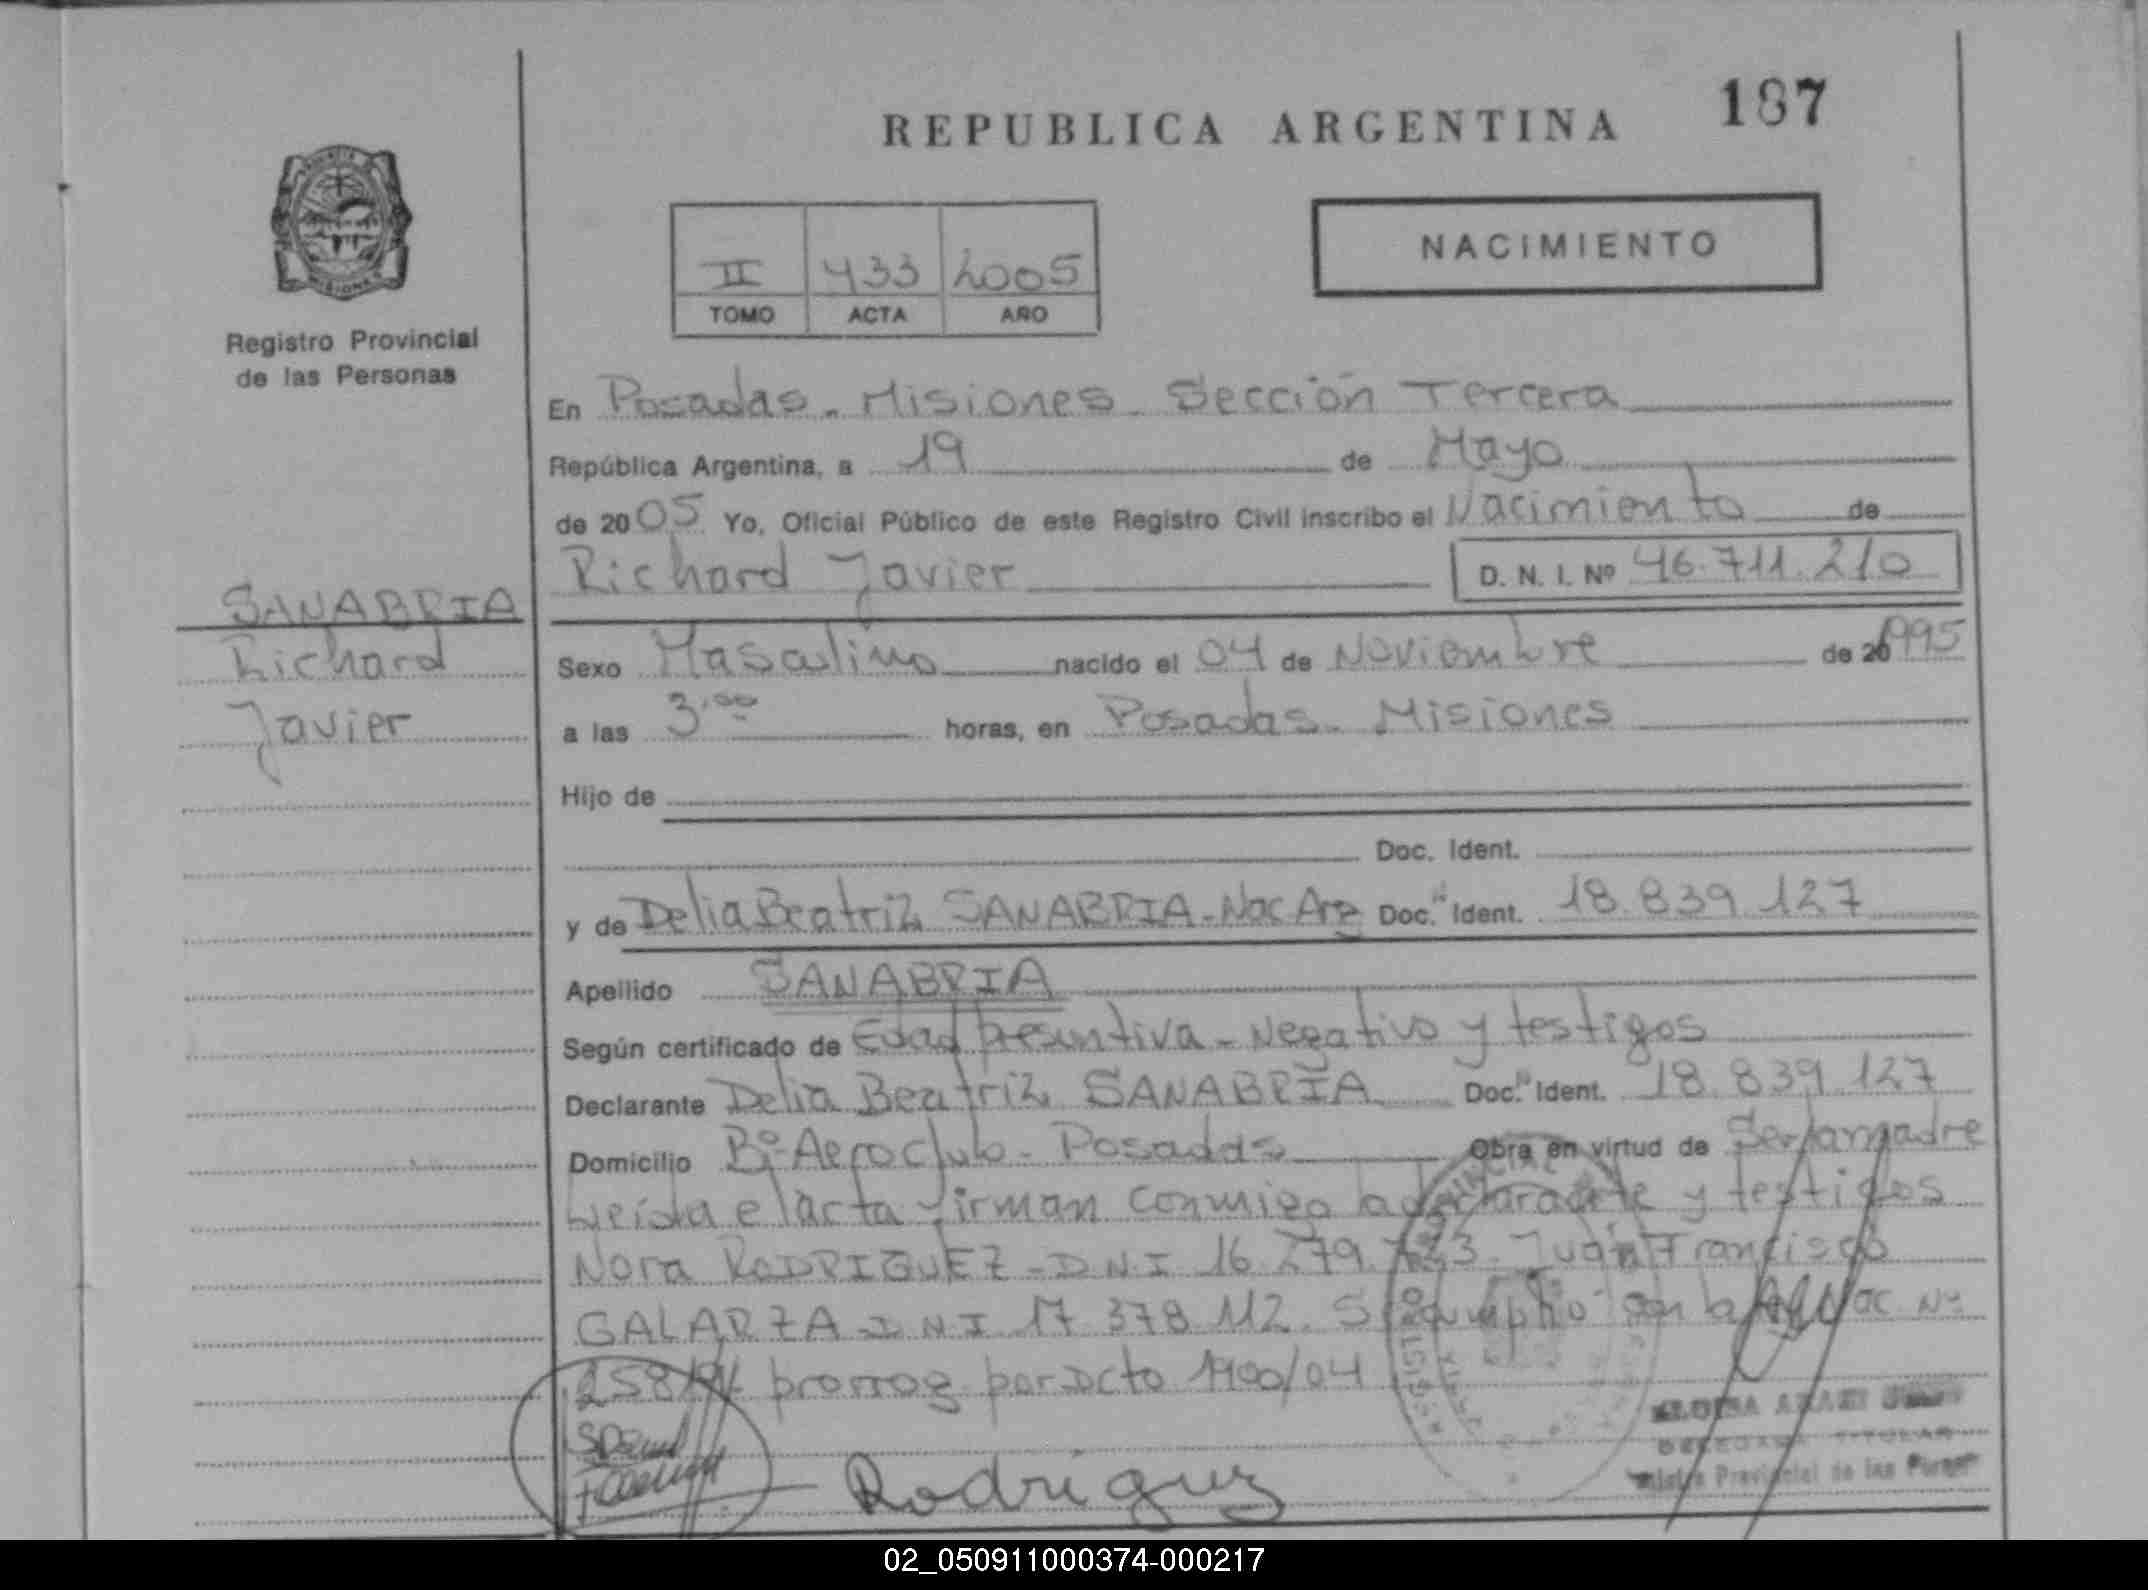 187
REPUBLICA ARGENTINA
NACIMIENTO
II 433 2005
TOMO ACTA AÑO
Registro Provincial
de las Personas
En Posadas - Misiones - Sección Tercera
República Argentina, a 19 de Mayo
de 2005 Yo, Oficial Público de este Registro Civil inscribo el Nacimiento de
Richard Javier D. N. I. Nº 46.711.210
SANABRIA
Richard
Javier
Sexo Masculino nacido el 04 de Noviembre de 1995
a las 3,00 horas, en Posadas - Misiones
Hijo de
Doc. Ident.
y de Delia Beatriz SANABRIA - Nac Arg Doc. Ident. 18.839.127
Apellido SANABRIA
Según certificado de Edad Presuntiva - Negativo y testigos
Declarante Delia Beatriz SANABRIA Doc. Ident. 18.839.127
Domicilio Bº Aeroclub - Posadas Obra en virtud de Ser la madre
Leída el acta firman conmigo la declarante y testigos
Nora RODRIGUEZ - D.N.I 16.279.723. Juan Francisco
GALARZA D.N.I 17 378 112. Se cumplió con la
prorrog por Dcto 1400/04
Rodriguez
Provincial de las
02_050911000374-000217